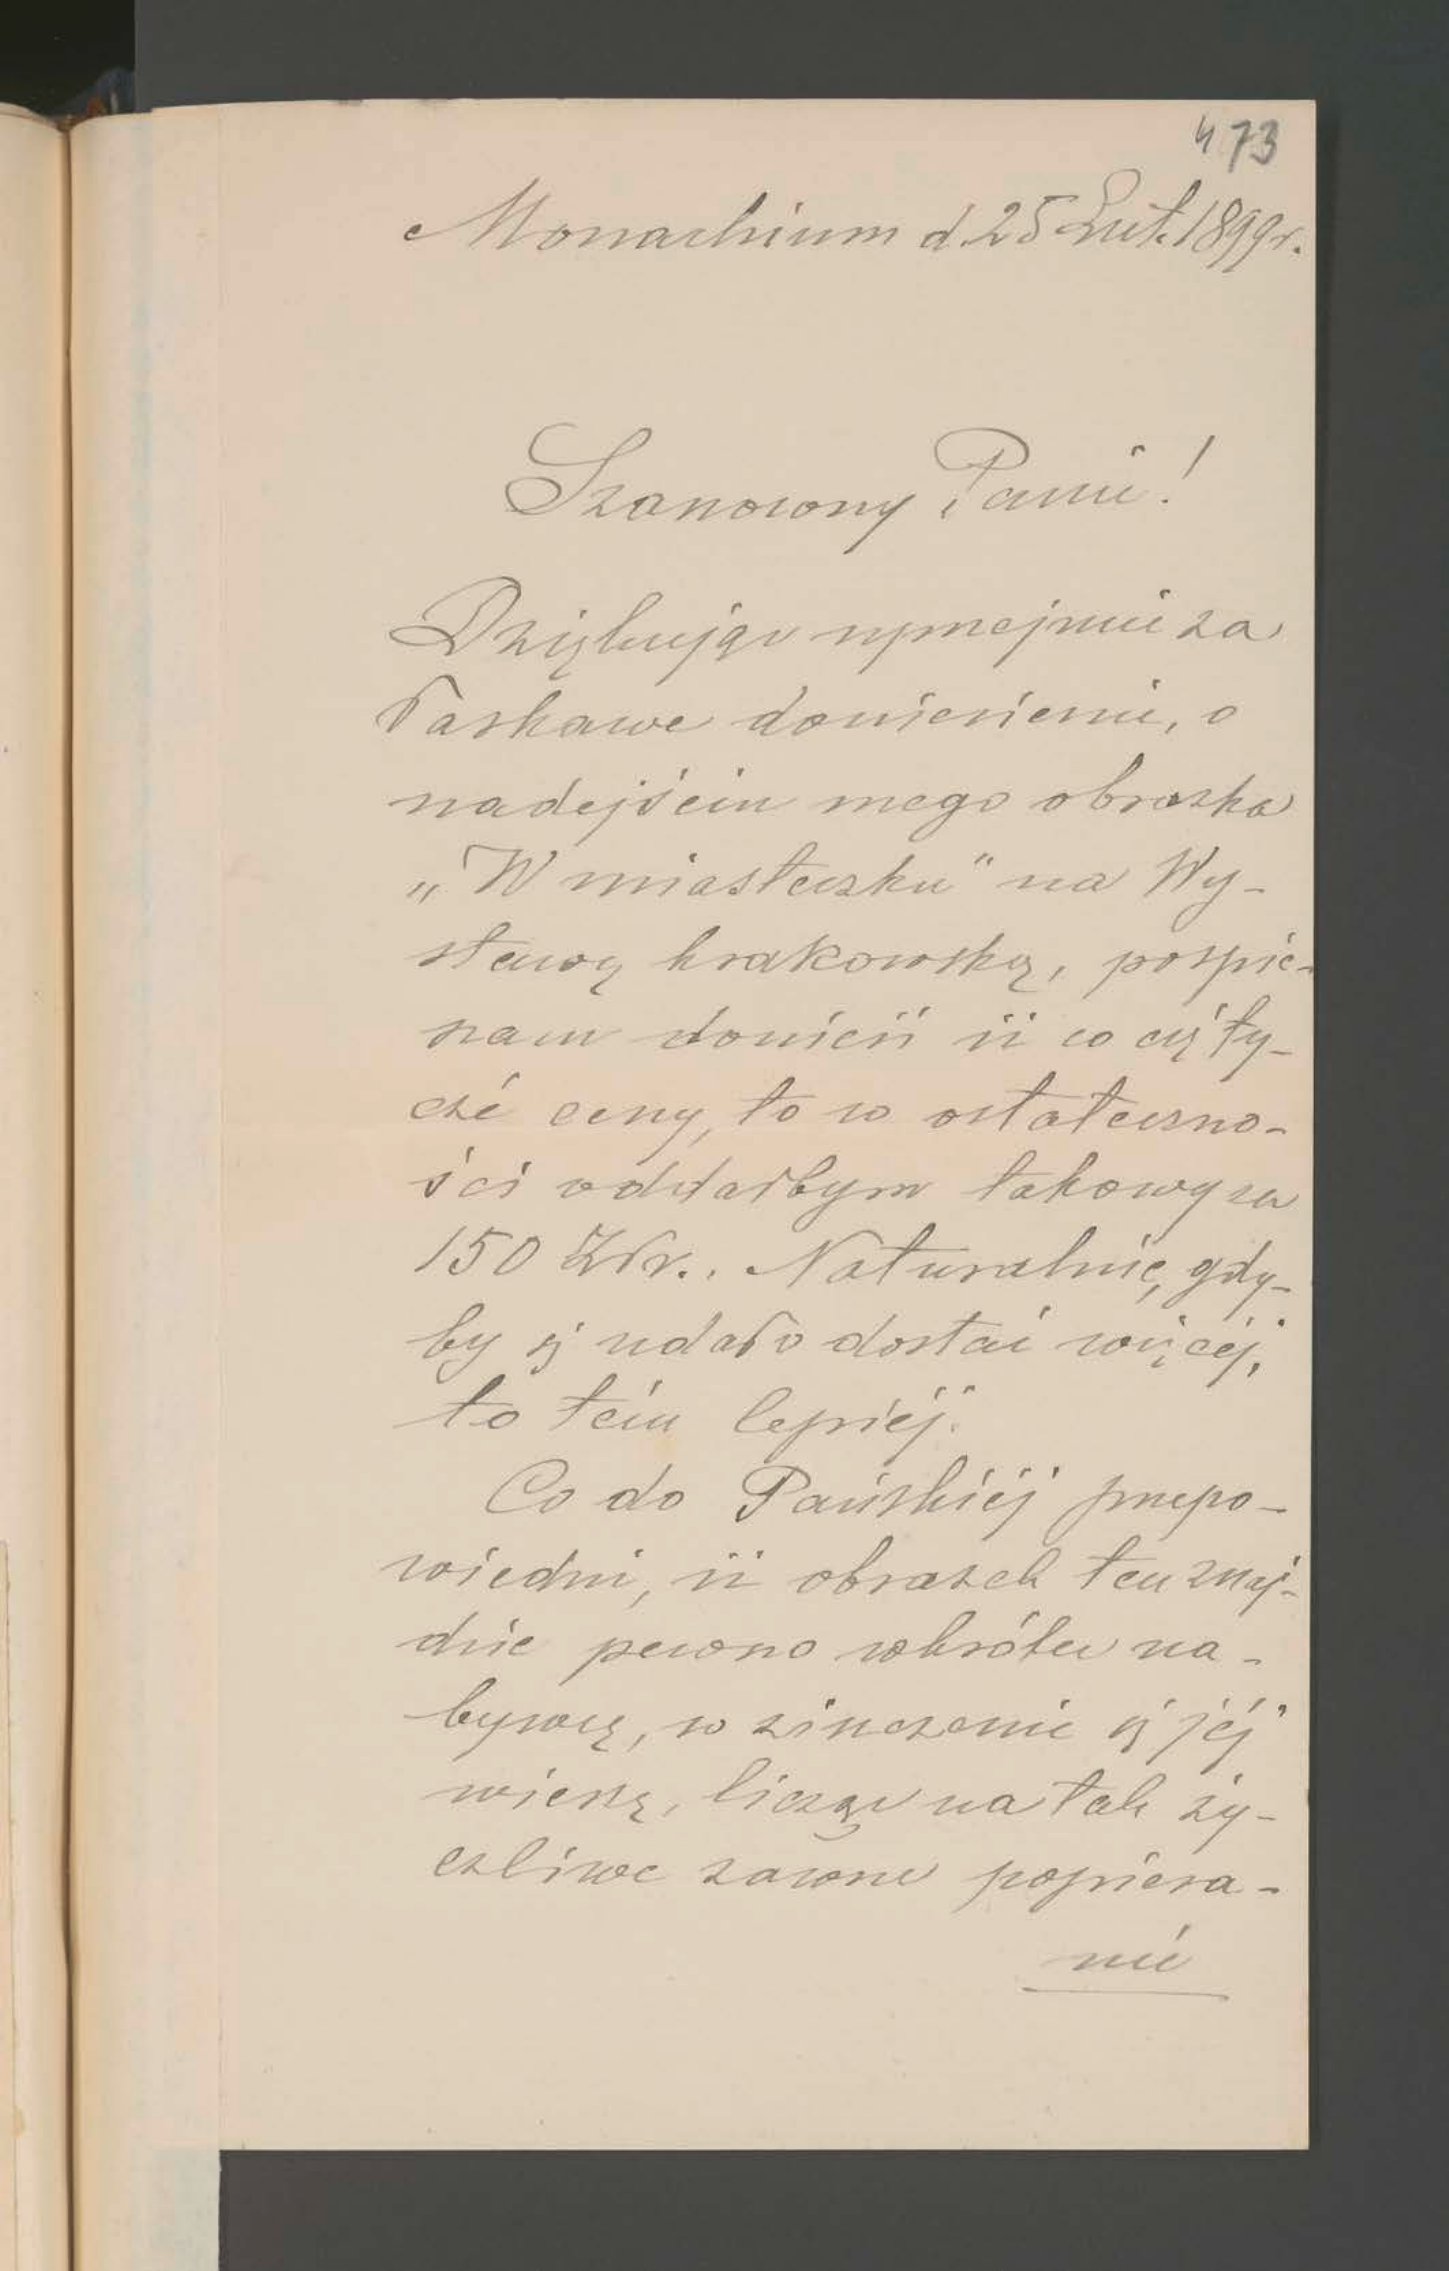 473
Monachium d. 25 Lut. 1899 r.
Szanowny Panie!
Dziękując uprzejmie za
łaskawe doniesienie, o
nadejściu mego obrazka
„W miasteczku" na Wy-
stawę krakowską, pospie-
szam donieść iż co się ty-
czé ceny, to w ostateczno-
ści oddałbym takowy za
150 Złr.. Naturalnie, gdy-
by się udało dostać więcéj,
to tém lepiéj.
Co do Pańskiéj przepo-
wiedni, iż obrazek ten znaj-
dzie pewno wkrótce na-
bywcę, w ziszczenie się jéj
wierzę, licząc na tak ży-
czliwe zawsze popiera-
nie